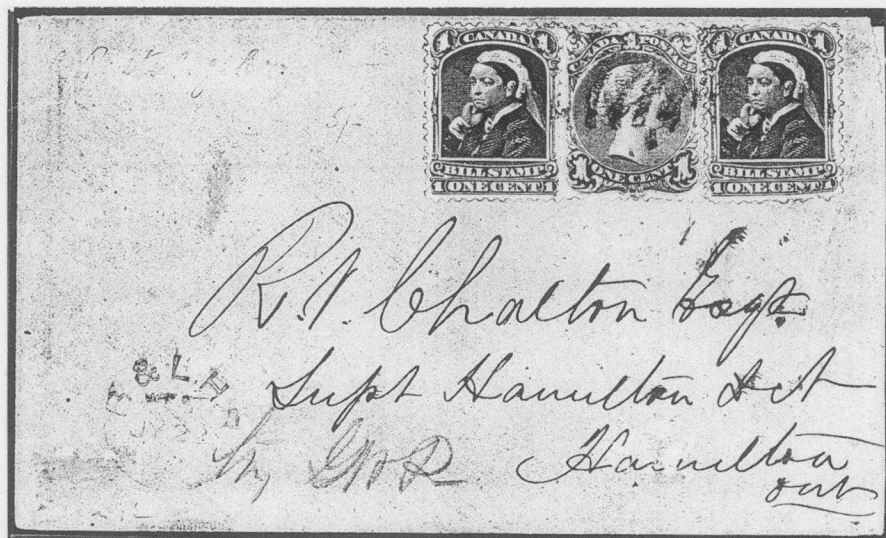 1 CANADA 1
BILL STAMP
1 ONE CENT 1
CANADA POSTAGE
1 ONE CENT 1
1 CANADA 1
BILL STAMP
1 ONE CENT 1
R. N. Chalton Esqr.
Supt Hamilton
& L H
G W R Hamilton
Ont